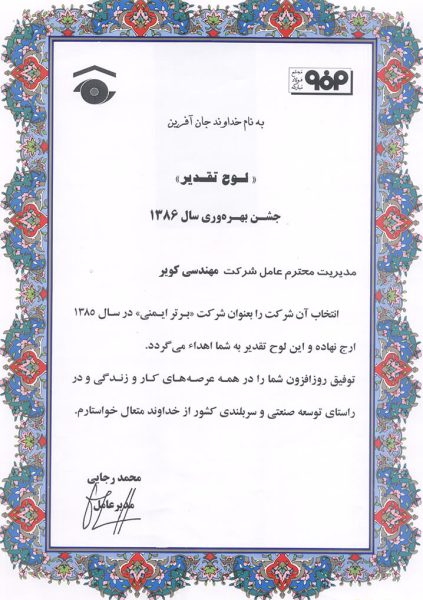 مجتمع
فولاد
مبارکه
به نام خداوند جان آفرین
« لـوح تقـدیر»
جشـن بهـره‌وری سال ۱۳۸۶
مدیریت محترم عامل شرکت مهندسی کویر
انتخاب آن شرکت را بعنوان شرکت «برتر ایمنی» در سـال ۱۳۸۵
ارج نهاده و این لوح تقدیر به شما اهداء می‌گردد.
توفیق روزافزون شما را در همه عرصـه‌هـای کـار و زنـدگـی و در
راستای توسعه صنعتی و سربلندی کشور از خداوند متعال خواستارم.
محمد رجایی
مدیرعامل